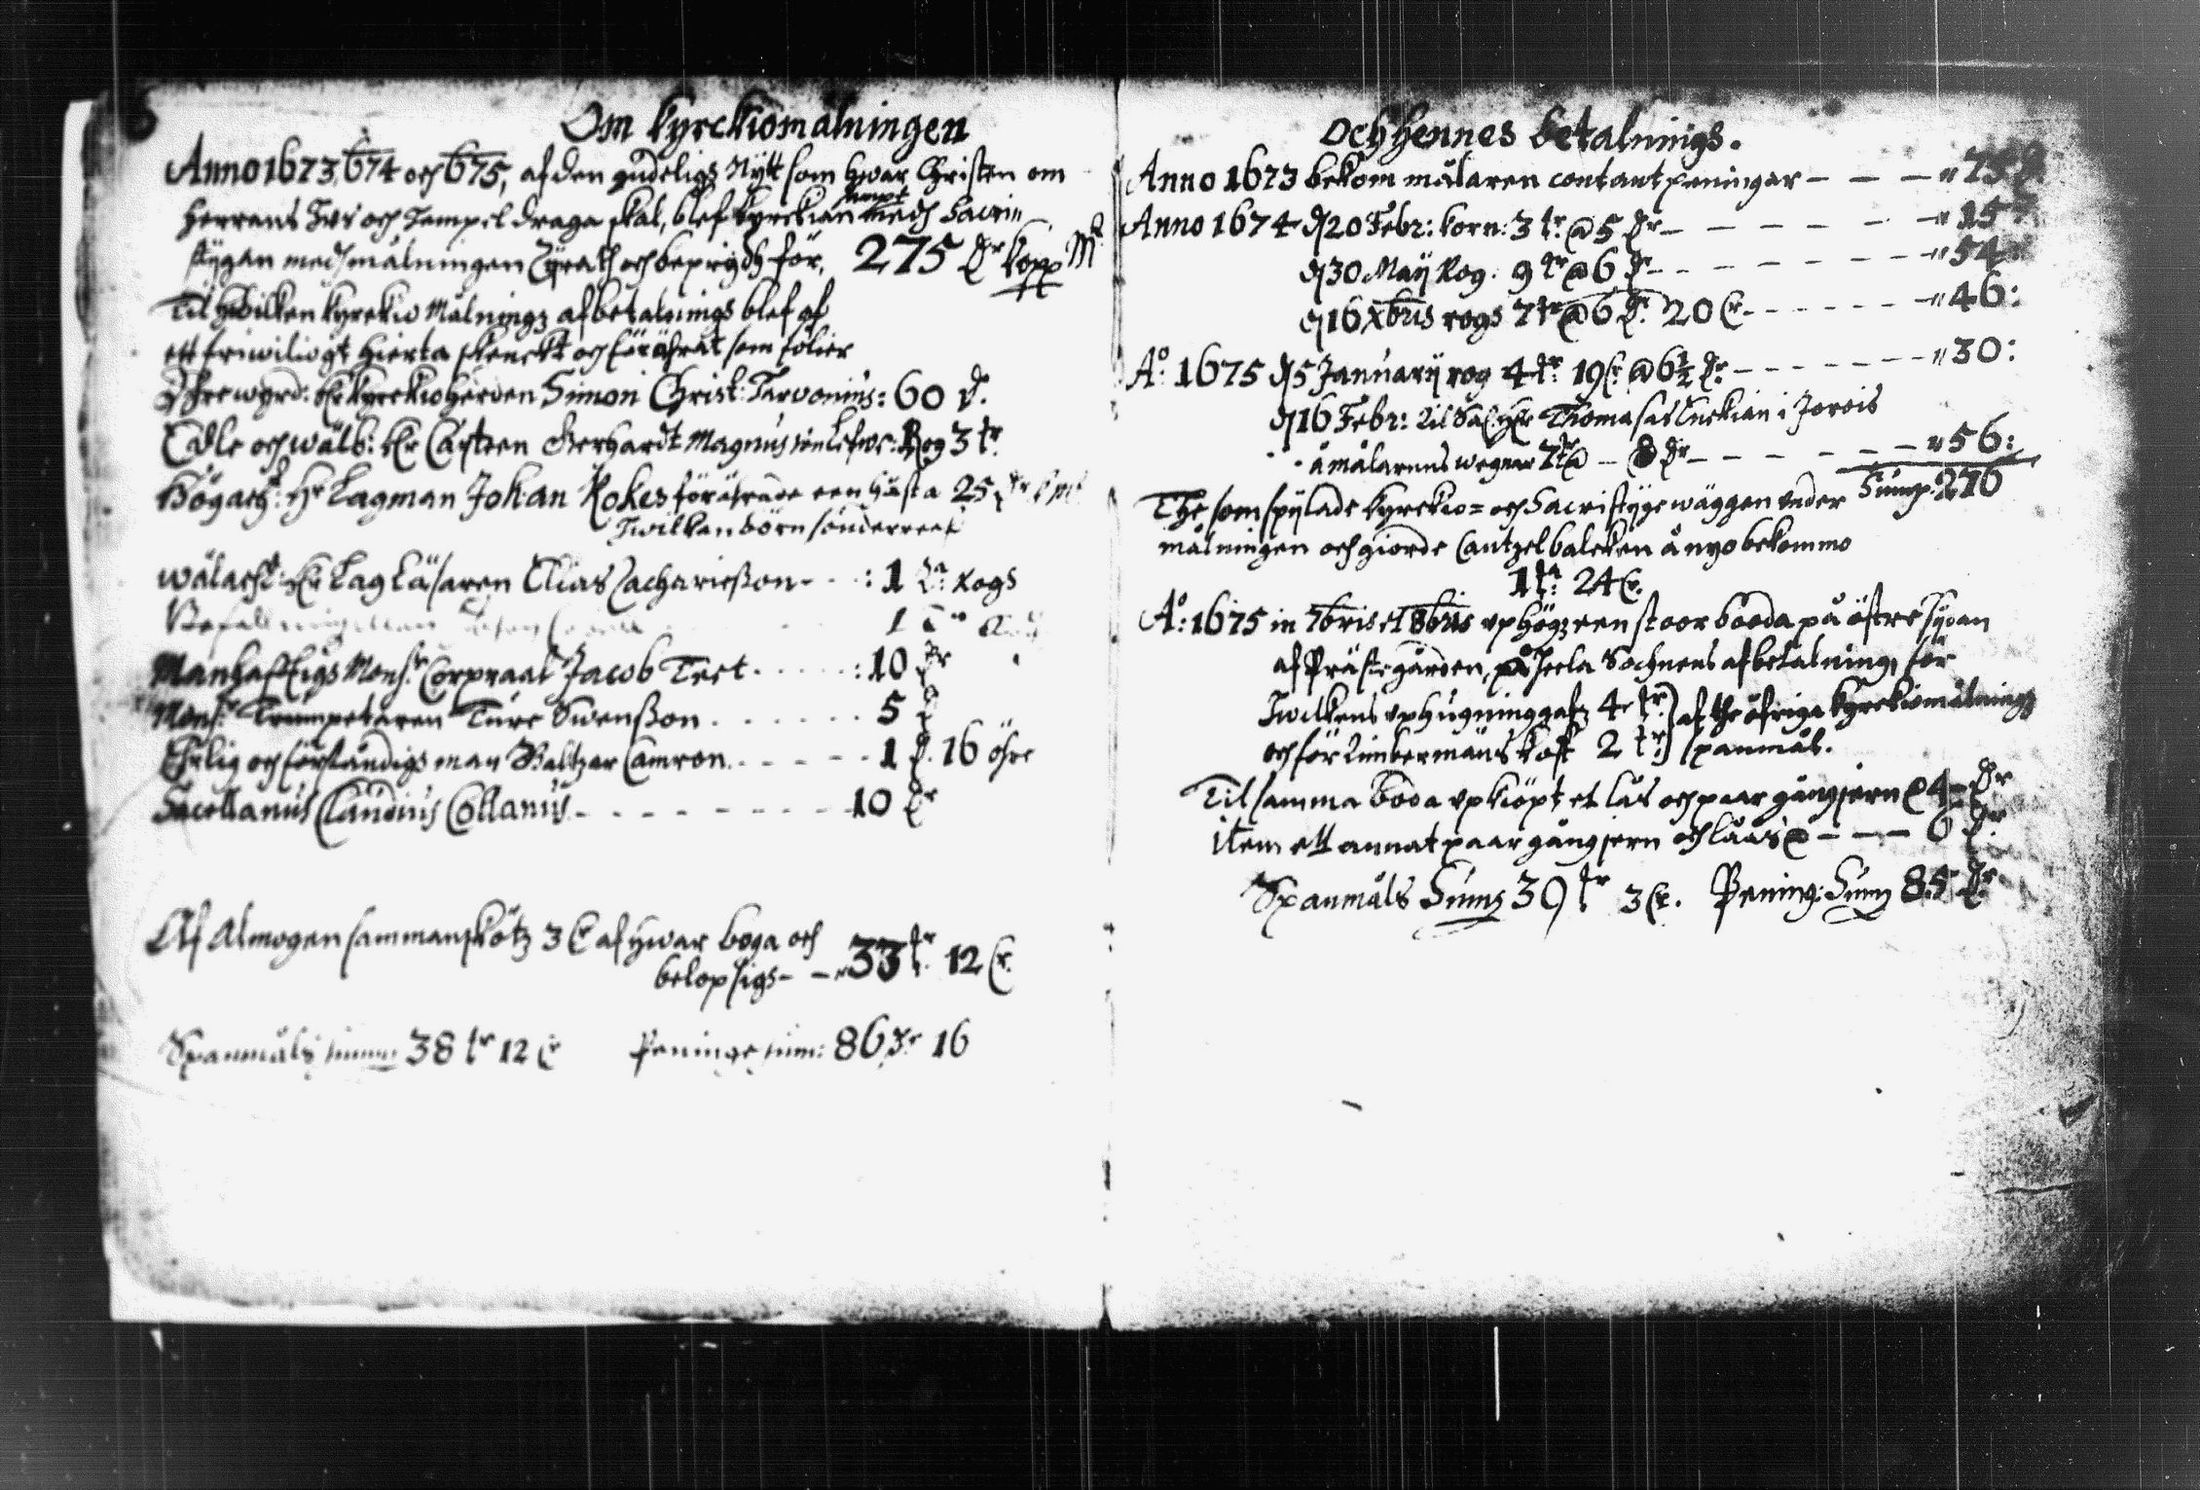 Om kyrckiomålningen
Anno 1673, 674 och 675, af den gudeligz Nytt som hwar Christen om
herrans hws och Tempel draga skal, blef kyrckian sampt medh Sacri
stygan medh målningen Zyrath och beprydh för. 275 Dr kopp Mt
Til hwilken kyrckio Målningz afbetalnings blef af
ett friwilliogt hierta skenckt och föräh­rat som fölier
Ehrewyrd: Hr kyrckioherden Simon Christ: Tarvonius: 60 D.
Edle och wälb: Hr Casten Gerhardt Magnus Rog 3 tr
Högacht: Hr Lagman Johan Kokes förährade een häst a 25 Dr
hwilken börn sönderreef
wälacht: Hr Lag Läsaren Elias Zachariesson - - : 1 ta: Rogs
Befallningzman 1
Manhafftigs Mons:r Corpraal Jacob Teet . . . . . : 10 Dr
Mons:r Trumpetaren Ture Swensson . . . . . . 5 D
Ehrlig och förståndigs man Baltzar Camron . - - - - - 1 D. 16 öhre
Sacellanus Claudius Collanus - - - - - - - - 10 Dr
Af Almogen sammanskötz 3 Cr af hwar boga och
belop sigs - - 33 tr 12 Cr.
Spanmåls summ 38 tr 12 Cr Peninge sum: 86 Dr 16
och hennes betalnings.
Anno 1673 bekom målaren contant peningar - - - " 75 D
Anno 1674 d 20 Febr: korn: 3 tr @ 5 Dr - - - - - - " 15
d 30 Maij Rog. 9 tr @ 6 Dr - - - - - - " 54
d 16 Xbris rogs 7 tr @ 6 Dr. 20 Cr - - - - - " 46:
A:o 1675 d 5 Januarij rog 4 tr. 19 Cr @ 6½ Dr - - - - - - " 30:
d 16 Febr: til Sal. Hr Thomasas Enckian i Jorois
å målarens wegnar 7 tr @ - 8 Dr - - - - - - " 56:
Summ. 276
The som spylade kyrckio= och Sacristyge wäggen under
målningen och giorde Cantzelbalcken å nyo bekommo
1 ta: 24 Cr.
A:o 1675 in 7bris et 8bris uphögz een stoor booda på östre sydan
af Prästegården, på heela Sochnens afbetalning, för
hwilkens uphugning gafz 4 tr. ) af the öfriga kyrckiomålnings
och för timbermäns kost 2 tr. ) spanmål.
Til samma booa upkiöpt et lås och paar gångjern @ 4 - Dr
item ett annat paar gångjern och låås @ - - - 6 Dr.
Spanmåls Summ 39 tr 3 Cr. Pening. Summ 85 Dr.